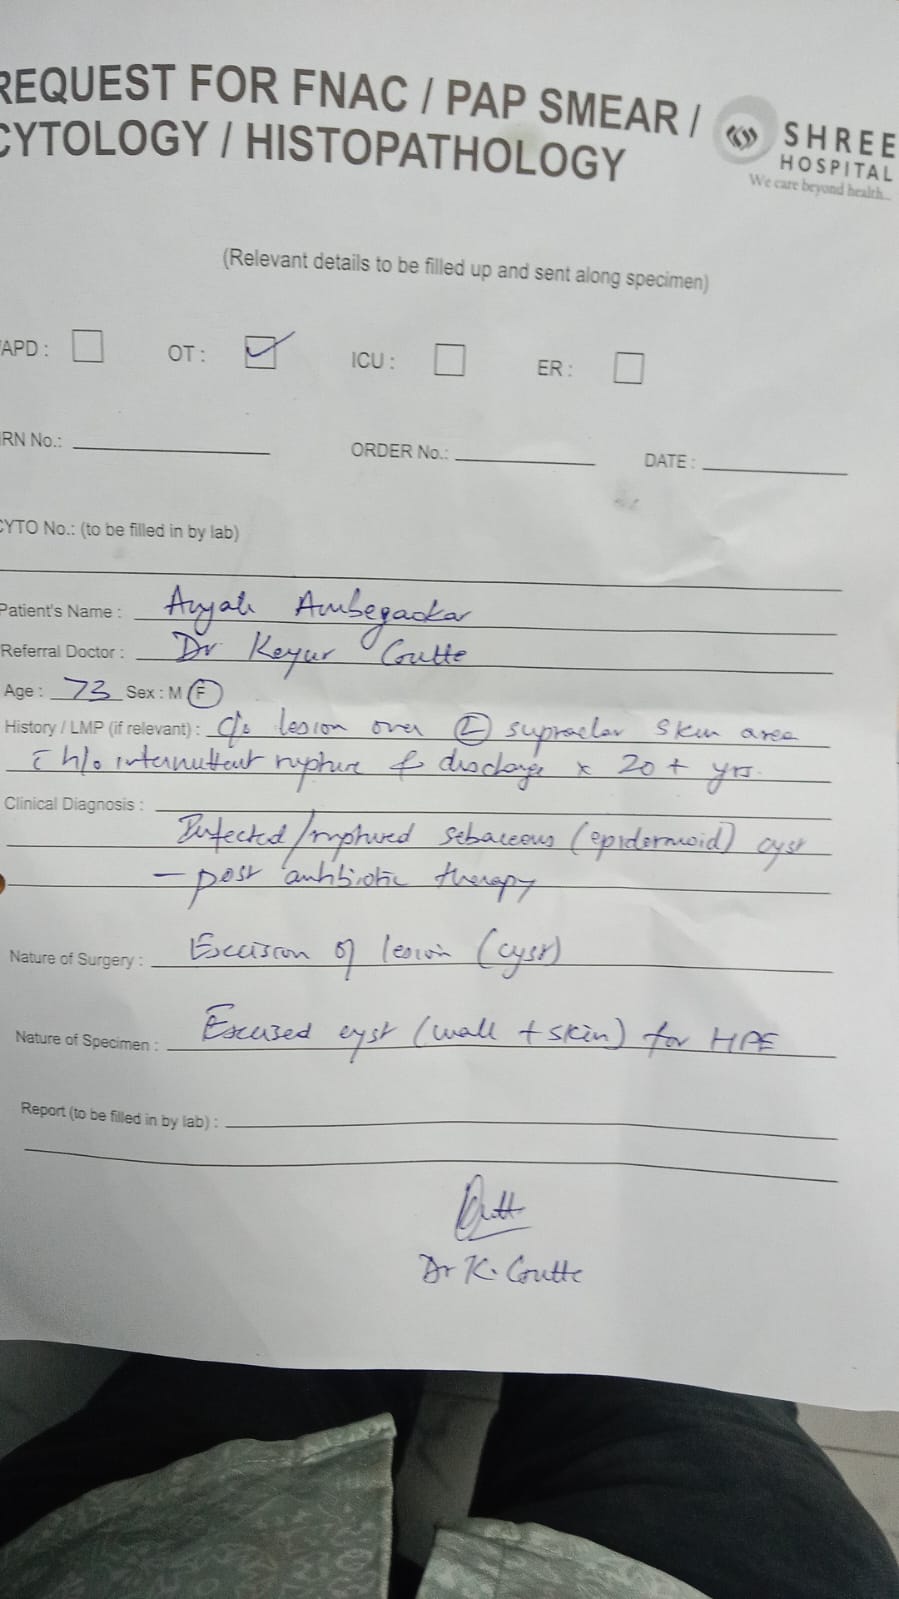 REQUEST FOR FNAC / PAP SMEAR /
CYTOLOGY / HISTOPATHOLOGY
SHREE
HOSPITAL
We care beyond health...
(Relevant details to be filled up and sent along specimen)
APD : OT : ICU : ER :
RN No.: ORDER No.: DATE :
CYTO No.: (to be filled in by lab)
Patient's Name : Ambegaokar
Referral Doctor : Dr Keyur Gutte
Age : 73 Sex : M F
History / LMP (if relevant) : c/o lesion over (L) supraclav skin area
c̄ h/o intermittent rupture & discharge x 20+ yrs.
Clinical Diagnosis :
Infected/ruptured sebaceous (epidermoid) cyst
- post antibiotic therapy
Nature of Surgery : Excision of lesion (cyst)
Nature of Specimen : Excised cyst (wall + skin) for HPE
Report (to be filled in by lab) :
Dr K. Gutte